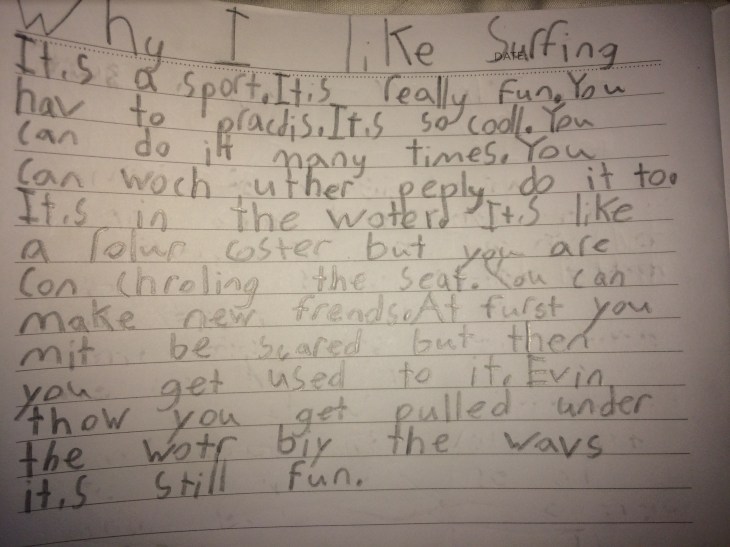 Why I like Surffing
DATE:
It,s a sport. It,s really fun. You
hav to practis. It,s so cooll. You
can do it many times. You
can woch uther peply do it too.
It,s in the woter. It,s like
a rolur coster but you are
con chroling the seat. You can
make new frends. At furst you
mit be scared but then
you get used to it. Evin
thow you get pulled under
the wotr biy the wavs
it,s still fun.